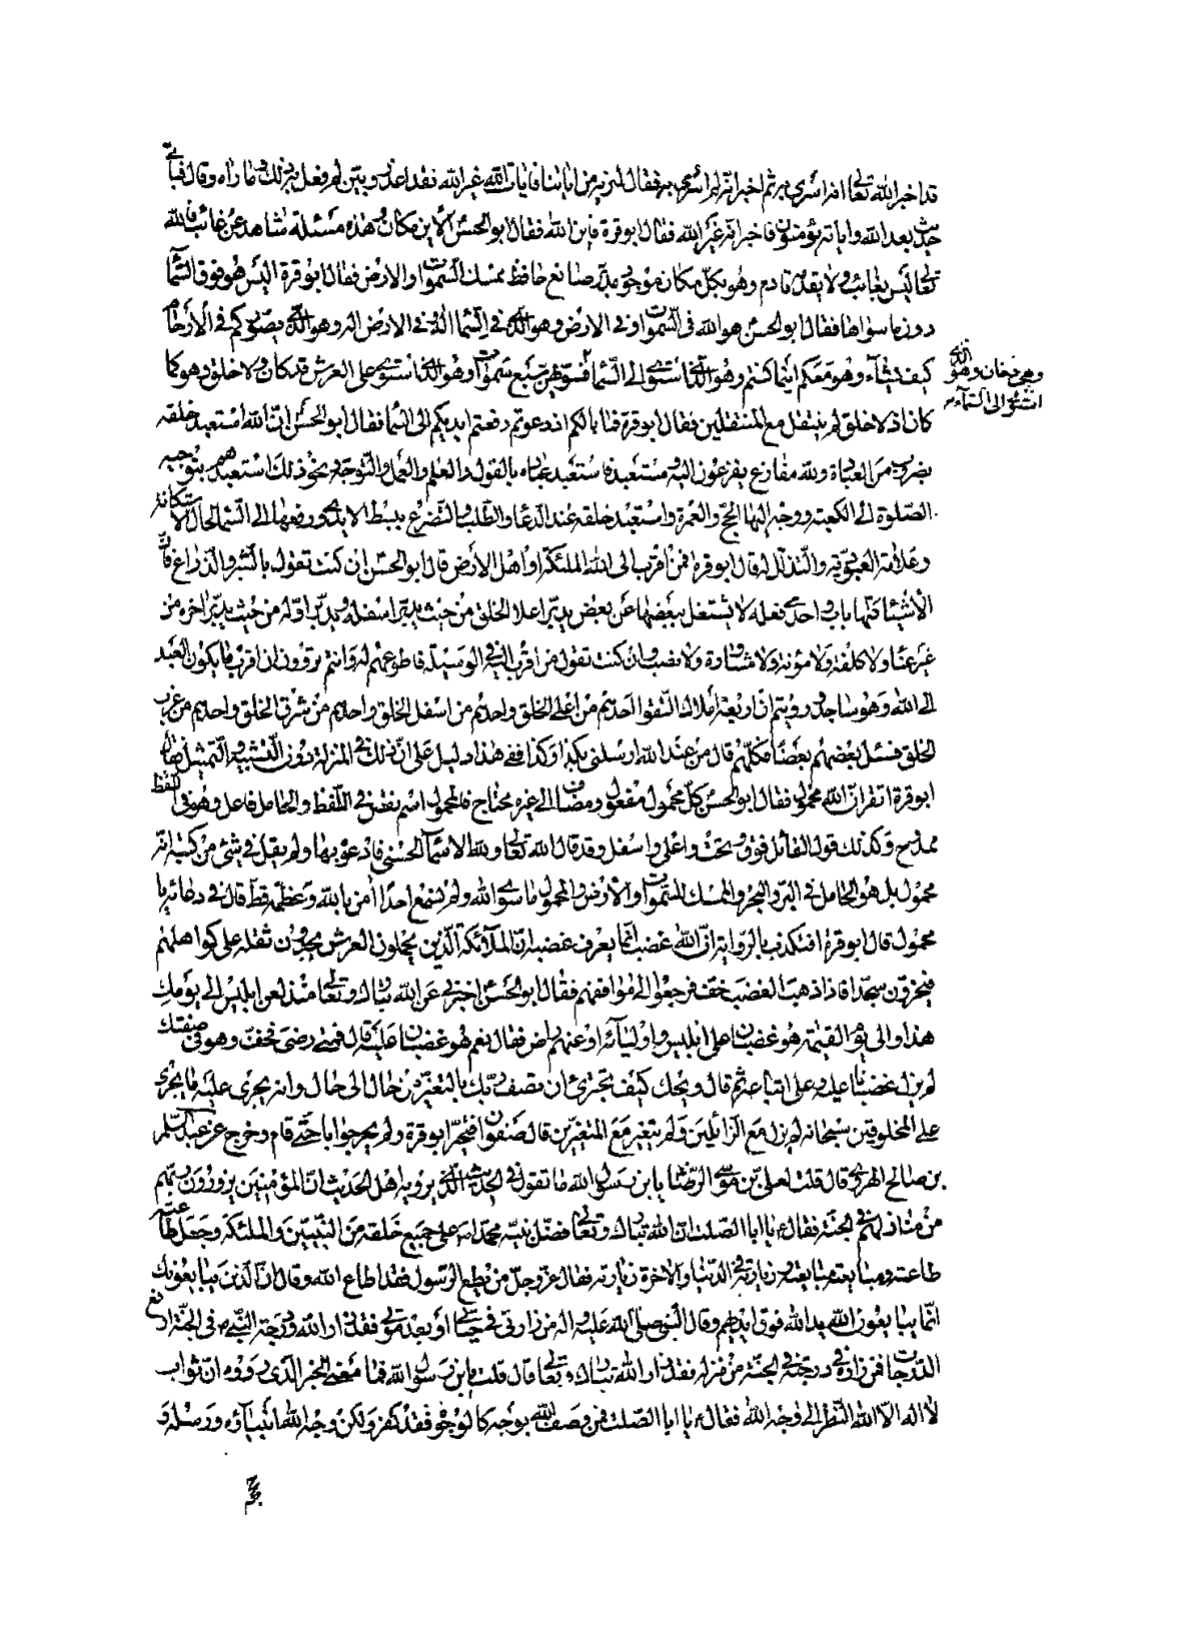 قد اخبر الله تعالى انه اسرى به ثم اخبر انه لم اسرى به فقال لنريه من اياتنا فايات الله غير الله فقد اعذر وبين لم فعل به ذلك وما راه وقال فباى
حديث بعد الله واياته يؤمنون فاخبر انه غير الله فقال ابو قرة فاين الله فقال ابو الحسن الاين مكان وهذه مسئلة شاهد عن غائب فالله
تعالى ليس بغائب ولا يقدمه قادم وهو بكل مكان موجود مدبر صانع حافظ ممسك السموات والارض فقال ابو قرة اليس هو فوق السماء
دون ما سواها فقال ابو الحسن هو الله فى السموات وفى الارض وهو الذى فى السماء اله وفى الارض اله وهو الذى يصوركم فى الارحام
كيف يشاء وهو معكم اينما كنتم وهو الذى استوى الى السماء فسويهن سبع سموات وهو الذى استوى على العرش قد كان ولا خلق وهو كما
وهى دخان وهو الذى
استوى الى السماء
كان اذ لا خلق لم ينتقل مع المنتقلين فقال ابو قرة فما بالكم اذ دعوتم رفعتم ايديكم الى السماء فقال ابو الحسن ان الله استعبد خلقه
بضروب من العبادة ولله مفازع يفزعون اليه ومستعبد فاستعبد عباده بالقول والعلم والعمل والتوجه ونحو ذلك استعبدهم بتوجيه
الصلوة الى الكعبة ووجه اليها الحج والعمرة واستعبد خلقه عند الدعاء والطلب والتضرع ببسط الايدى ورفعها الى السماء لحال الاستكانة
وعلامة العبودية والتذلل له قال ابو قرة فمن اقرب الى الله الملئكة او اهل الارض قال ابو الحسن ان كنت تقول بالشبر والذراع فان
الاشياء كلها باب واحد هى فعله لا يشتغل ببعضها عن بعض يدبر اعلا الخلق من حيث يدبر اسفله ويدبر اوله من حيث يدبر اخره من
غير عناء ولا كلفة ولا مؤنة ولا مشاورة ولا نصب وان كنت تقول من اقرب اليه فى الوسيلة فاطوعهم له وانتم تروون ان اقرب ما يكون العبد
الى الله وهو ساجد ورويتم ان اربعة املاك التقوا احدهم من اعلى الخلق واحدهم من اسفل الخلق واحدهم من شرق الخلق واحدهم من غرب
الخلق فسئل بعضهم بعضا فكلهم قال من عند الله ارسلنى بكذا وكذا ففى هذا دليل على ان ذلك فى المنزلة دون التشبيه والتمثيل فقال
ابو قرة اتقر ان الله محمول فقال ابو الحسن كل محمول مفعول ومضاف الى غيره محتاج فالمحمول اسم نقص فى اللفظ والحامل فاعل وهو فى اللفظ
ممدح وكذلك قول القائل فوق وتحت واعلى واسفل وقد قال الله تعالى ولله الاسماء الحسنى فادعوه بها ولم يقل فى شئ من كتبه انه
محمول بل هو الحامل فى البر والبحر والممسك للسموات والارض والمحمول ما سوى الله ولم نسمع احدا امن بالله وعظمه قط قال فى دعائه يا
محمول قال ابو قرة افتكذب بالرواية ان الله غضب انما يعرف غضبه ان الملائكة الذين يحملون العرش يجدون ثقله على كواهلهم
فيخرون سجدا فاذا ذهب الغضب خف فرجعوا الى مواقفهم فقال ابو الحسن اخبرنى عن الله تبارك وتعالى منذ لعن ابليس الى يومك
هذا والى يوم القيمة هو غضبان على ابليس واوليائه او عنهم راض فقال نعم هو غضبان عليه قال فمتى رضى فخف وهو فى صفتك
لم يزل غضبانا عليه وعلى اتباعه ثم قال ويحك كيف تجترئ ان تصف ربك بالتغير من حال الى حال وانه يجرى عليه ما يجرى
على المخلوقين سبحانه لم يزل مع الزائلين ولم يتغير مع المتغيرين قال صفوان فتحير ابو قرة ولم يحر جوابا حتى قام وخرج عن عبد السلم
بن صالح الهروى قال قلت لعلى بن موسى الرضا يا بن رسول الله ما تقول فى الحديث الذى يرويه اهل الحديث ان المؤمنين يزورون ربهم
من منازلهم فى الجنة فقال يا ابا الصلت ان الله تبارك وتعالى فضل نبيه محمدا ص على جميع خلقه من النبيين والملئكة وجعل طاعته
طاعته ومبايعته مبايعته وزيارته فى الدنيا والاخرة زيارته فقال عز وجل من يطع الرسول فقد اطاع الله وقال ان الذين يبايعونك
انما يبايعون الله يد الله فوق ايديهم وقال النبى صلى الله عليه واله من زارنى فى حيوتى او بعد موتى فقد زار الله ودرجة النبى فى الجنة ارفع
الدرجات فمن زاره فى درجته فى الجنة من منزله فقد زار الله تبارك وتعالى قال قلت يا بن رسول الله فما معنى الخبر الذى رووه ان ثواب
لا اله الا الله النظر الى وجه الله فقال يا ابا الصلت فمن وصف الله بوجه كالوجوه فقد كفر ولكن وجه الله انبياؤه ورسله و